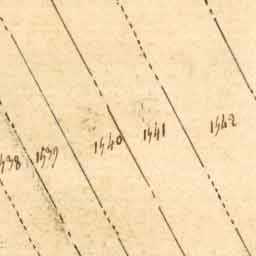 1538 1539 1540 1541 1542